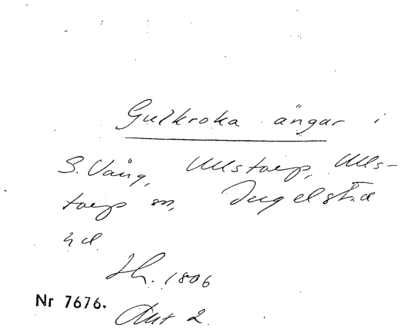 Gulkroka ängar i
S. Vång, Ullstorp, Ulls-
torp sn, Ingelstad
hd
Nr 7676.